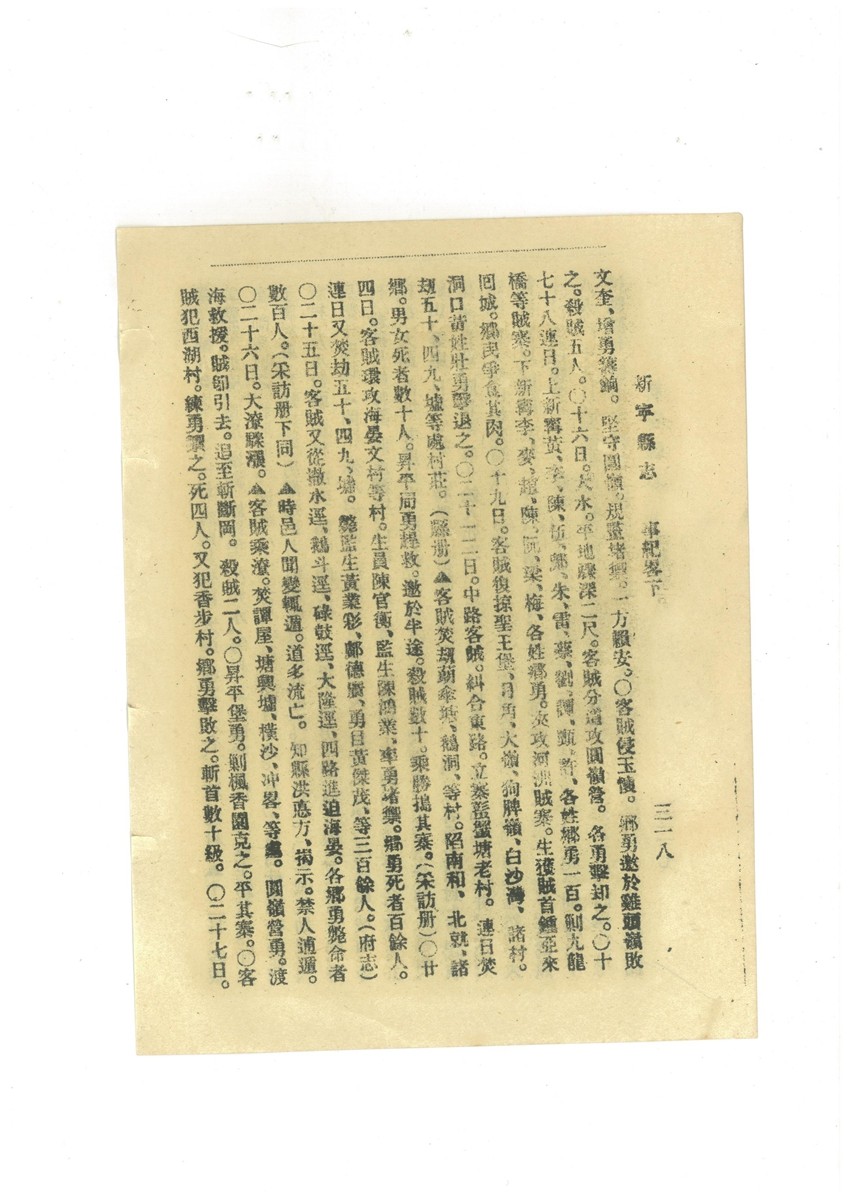 新寧縣志　事紀畧下。　三一八
文奎、增勇籌餉。堅守圓嶺。規畫堵禦。一方賴安。〇客賊侵玉懷。鄉勇邀於雞頭嶺敗
之。殺賊五人。〇十六日。大水。平地驟深二尺。客賊分道攻圓嶺營。各勇擊却之。〇十
七十八連日。上新寧黃、李、陳、伍、鄺、朱、雷、蔡、劉、譚、甄、許、各姓鄉勇一百。剿九龍
橋等賊寨。下新寧李、麥、趙、陳、阮、梁、梅、各姓鄉勇。夾攻河洲賊寨。生獲賊首鍾亞來
回城。鄉民爭食其肉。〇十九日。客賊復掠聖王堡、月角、大嶺、狗脾嶺、白沙灣、諸村。
洞口黃姓壯勇擊退之。〇二十一二日。中路客賊。糾合東路。立寨蟛蟹塘老村。連日焚
劫五十、四九、墟等處村莊。（縣册）▲客賊焚劫萌傘塘、鵝洞、等村。陷南和、北就、諸
鄉。男女死者數十人。昇平局勇趕救。邀於半途。殺賊數十。乘勝搗其寨。（采訪册）〇廿
四日。客賊環攻海晏文村等村。生員陳官衡、監生陳鴻業、率勇堵禦。鄉勇死者百餘人。
連日又焚劫五十、四九、墟。斃監生黃業彩、鄺德廣、勇目黃傑茂、等三百餘人。（府志）
〇二十五日。客賊又從撒水逕、鵝斗逕、碌鼓逕、大隆逕、四路進迫海晏。各鄉勇斃命者
數百人。（采訪册下同）▲時邑人聞變輒遁。道多流亡。知縣洪悳方、揭示。禁人逋遁。
〇二十六日。大潦驟漲。▲客賊乘潦。焚譚屋、塘興墟、橫沙、冲畧、等處。圓嶺營勇。渡
海救援。賊卽引去。追至斬斷岡。殺賊二人。〇昇平堡勇。剿楓香園克之。平其寨。〇客
賊犯西湖村。練勇禦之。死四人。又犯香步村。鄉勇擊敗之。斬首數十級。〇二十七日。